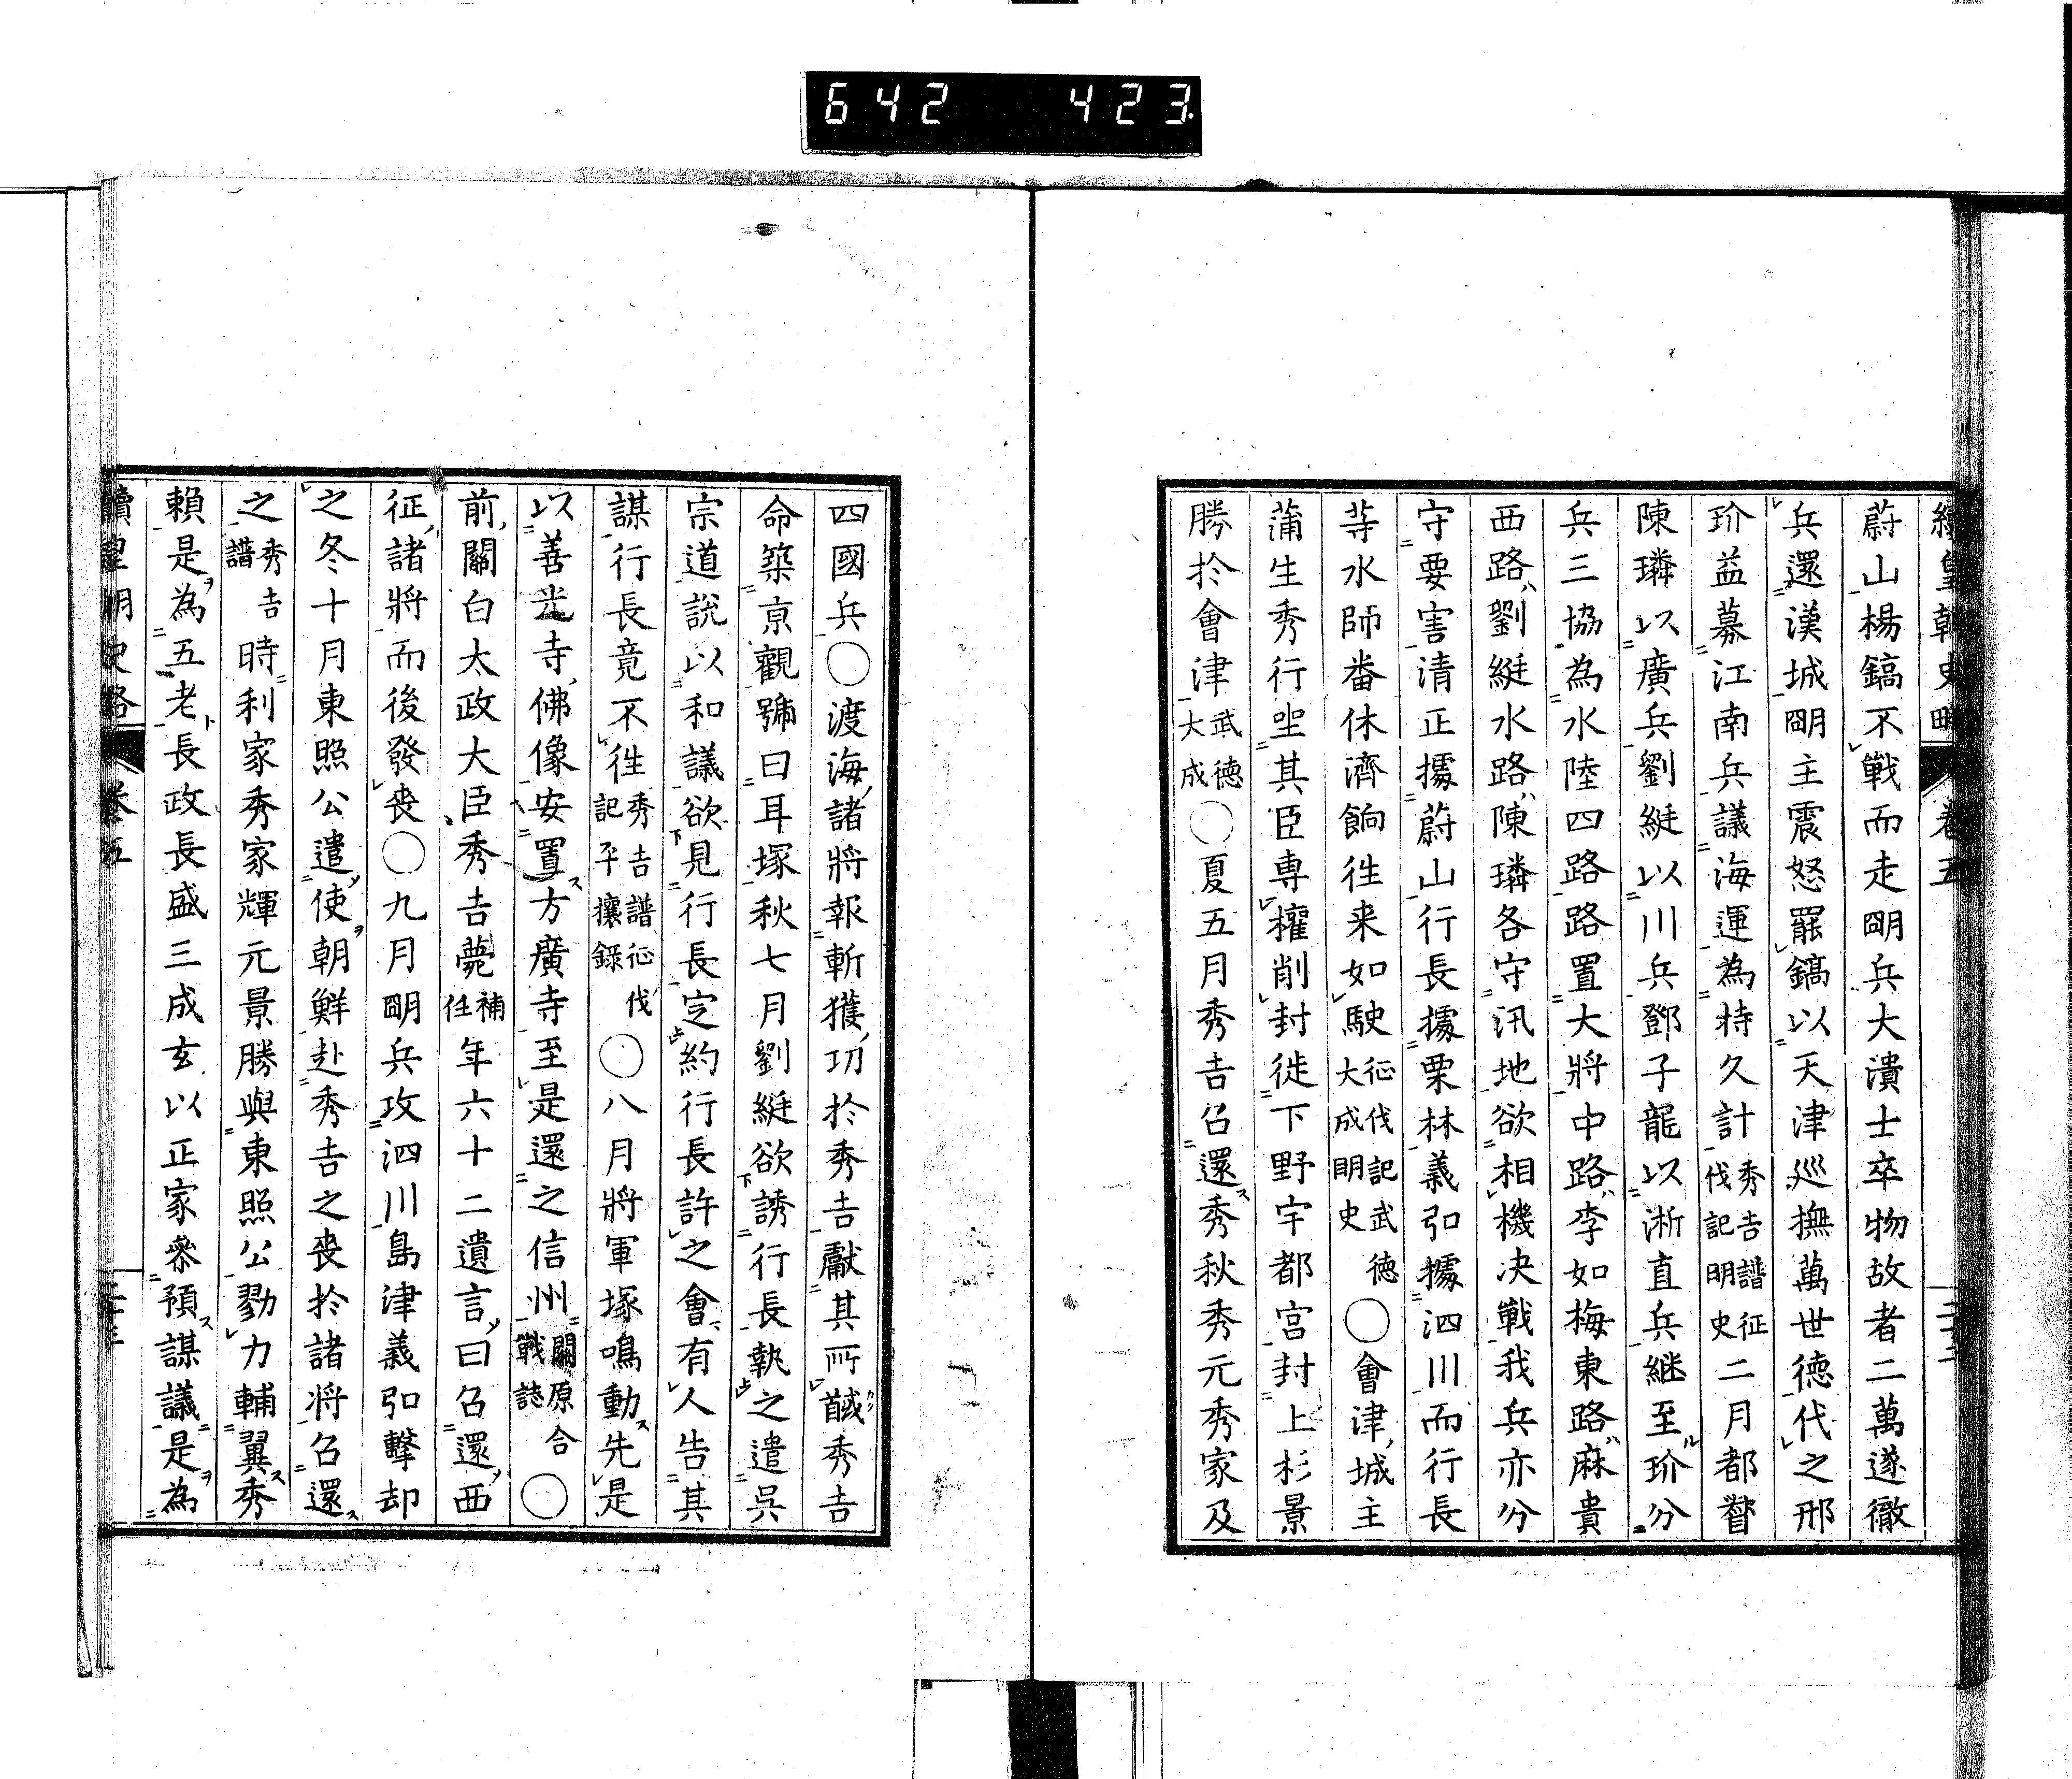 642 423
續皇朝史略 卷五
蔚山楊鎬不戰而走明兵大潰士卒物故者二萬遂徹
兵還漢城明主震怒罷鎬以天津巡撫萬世德代之邢
玠益募江南兵議海運為持久計秀吉譜征伐記明史二月都督
陳璘以廣兵劉綎以川兵鄧子龍以淅直兵継至玠分
兵三協為水陸四路路置大將中路ハ李如梅東路ハ麻貴
西路ハ劉綎水路ハ陳璘各守汛地欲相機决戰我兵亦分
守要害清正據蔚山行長據栗林義弘據泗川而行長
等水師畨休濟餉徃来如駛征伐記武徳大成明史〇會津城主
蒲生秀行坐其臣専權削封徙下野宇都宮封上杉景
勝於會津武徳大成〇夏五月秀吉召還秀秋秀元秀家及
四國兵〇渡海諸將報斬獲功於秀吉獻其所馘秀吉
命築京觀號曰耳塚秋七月劉綎欲誘行長執之遣呉
宗道說以和議欲見行長定約行長許之會有人告其
謀行長竟不徃秀吉譜征伐記平攘錄〇八月將軍塚鳴動先是
以善光寺佛像安置方廣寺至是還之信州關原合戰誌〇
前關白太政大臣秀吉薨補任年六十二遺言曰召還西
征諸將而後發喪〇九月明兵攻泗川島津義弘擊却
之冬十月東照公遣使朝鮮赴秀吉之喪於諸将召還
之秀吉譜時利家秀家輝元景勝與東照公勠力輔翼秀
賴是為五老長政長盛三成玄以正家參預謀議是為
續皇朝史略 卷五